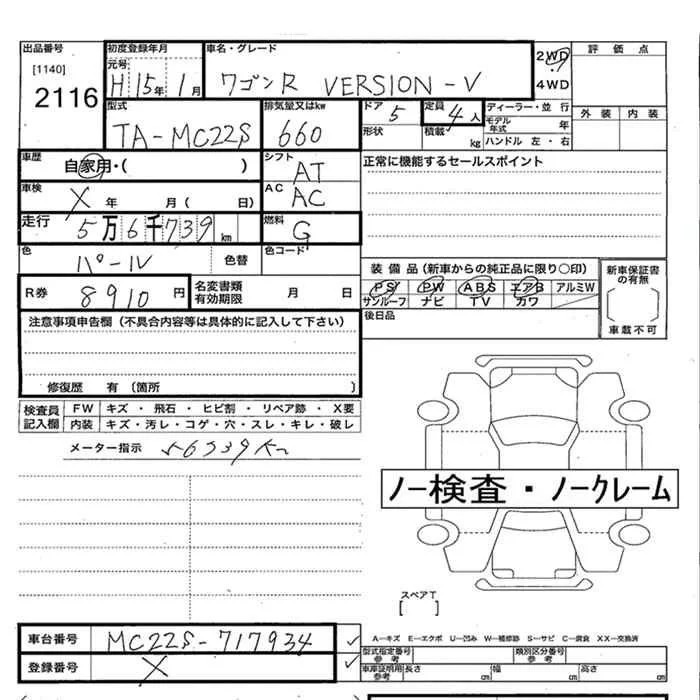 出品番号
[1140]
2116
初度登録年月
元号
H 15年 1月
車名・グレード
ワゴンR VERSION-V
2WD
4WD
評価点
外装 内装
型式
TA-MC22S
排気量又はkw
660
ドア 5
形状
定員 4人
積載 kg
ディーラー・並行
モデル年式 年
ハンドル 左・右
車歴
自家用・( )
シフト
AT
正常に機能するセールスポイント
車検
X 年 月( 日)
AC
AC
走行
5万6千739 km
燃料
G
色
パール
色替
色コード
Rカ券 8910円
名変書類有効期限 月 日
装備品(新車からの純正品に限り○印)
PS PW ABS エアB アルミW
サンルーフ ナビ TV カワ
新車保証書の有無
車載不可
後日品
注意事項申告欄(不具合内容等は具体的に記入して下さい)
修復歴 有(箇所 )
検査員記入欄
FW キズ・飛石・ヒビ割・リペア跡・X要
内装 キズ・汚レ・コゲ・穴・スレ・キレ・破レ
メーター指示 56539Km
ノー検査・ノークレーム
スペアT
[ ]
車台番号 MC22S-717934
登録番号 X
A―キズ E―エクボ U―凹み W―補修跡 S―サビ C―腐食 XX―交換済
型式指定番号 参考
類別区分番号 参考
車庫証明用 参考 長さ cm 幅 cm 高さ cm